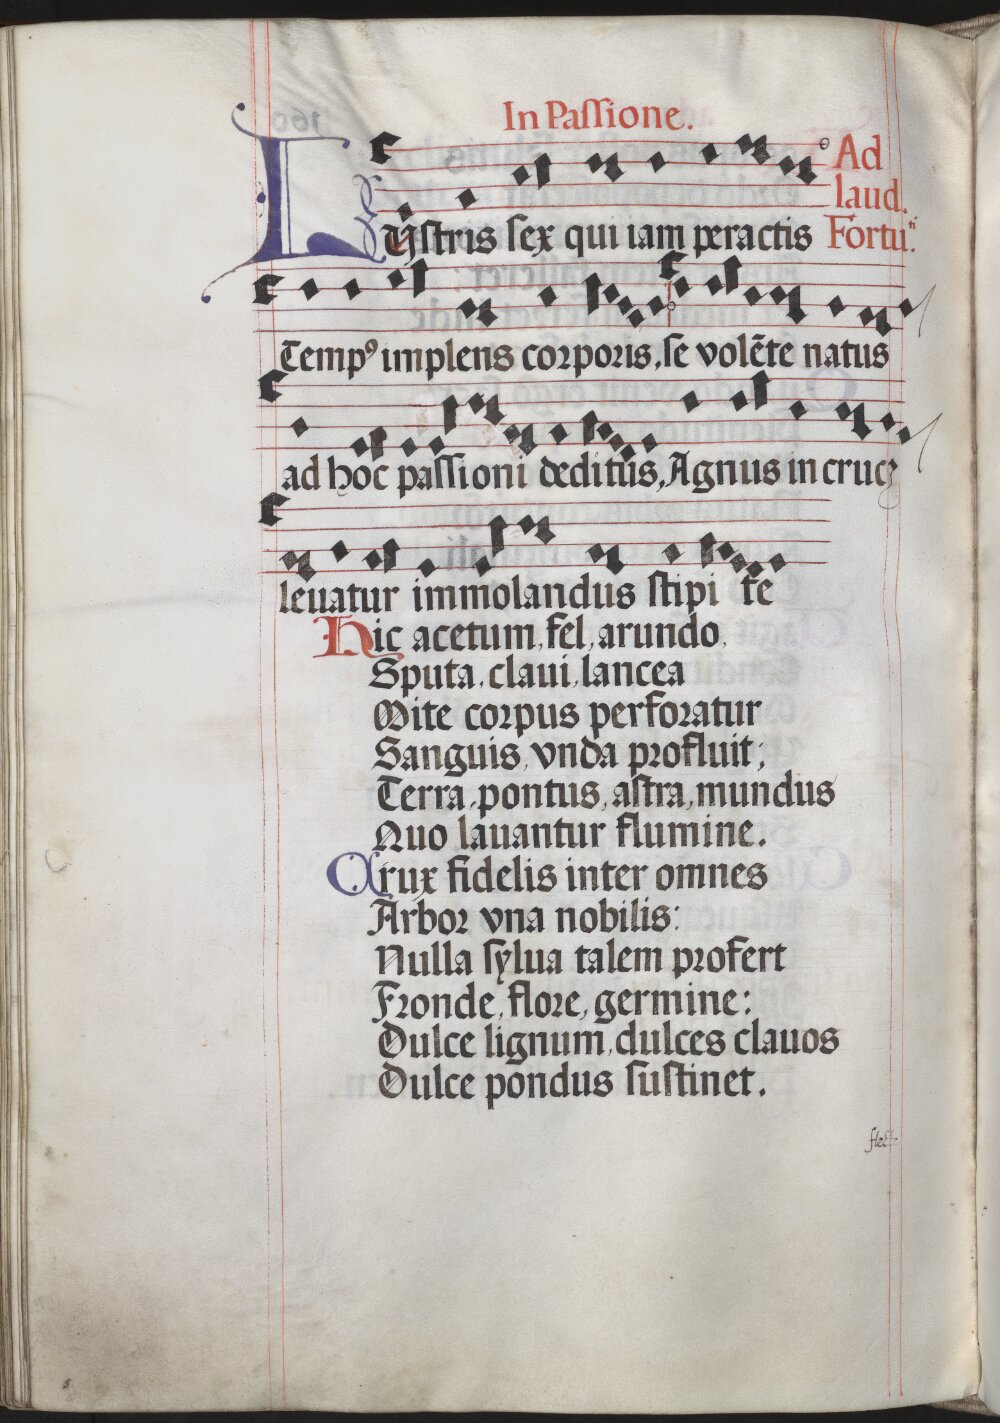 In Paſſione.
Ad
laud.
Lyſtris ſex qui iam peractis Fortu.
Temp⁹ implens corporis, ſe volēte natus
ad hoc paſſioni deditus, Agnus in cruce
leuatur immolandus ſtipi te
Hic acetum, fel, arundo,
Sputa, claui, lancea
Mite corpus perforatur
Sanguis, vnda profluit;
Terra, pontus, aſtra, mundus
Quo lauantur flumine.
Crux fidelis inter omnes
Arbor vna nobilis:
Nulla ſylua talem profert
Fronde, flore, germine:
Dulce lignum, dulces clauos
Dulce pondus ſuſtinet.